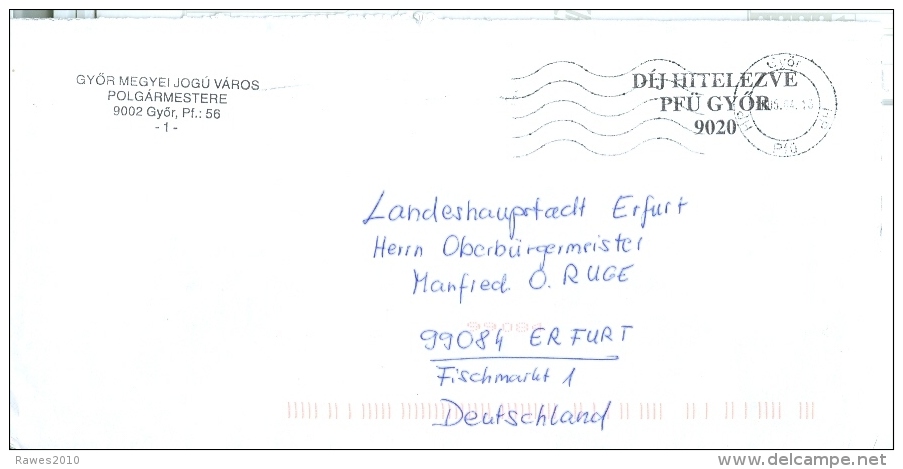 GYŐR MEGYEI JOGÚ VÁROS
POLGÁRMESTERE
9002 Győr, Pf.: 56
- 1 -
DÍJ HITELEZVE
PFÜ GYŐR
9020
Győr
Pfü
Landeshauptstadt Erfurt
Herrn Oberbürgermeister
Manfred O. RUGE
99084
99084 ERFURT
Fischmarkt 1
Deutschland
Rawes2010
www.delcampe.net